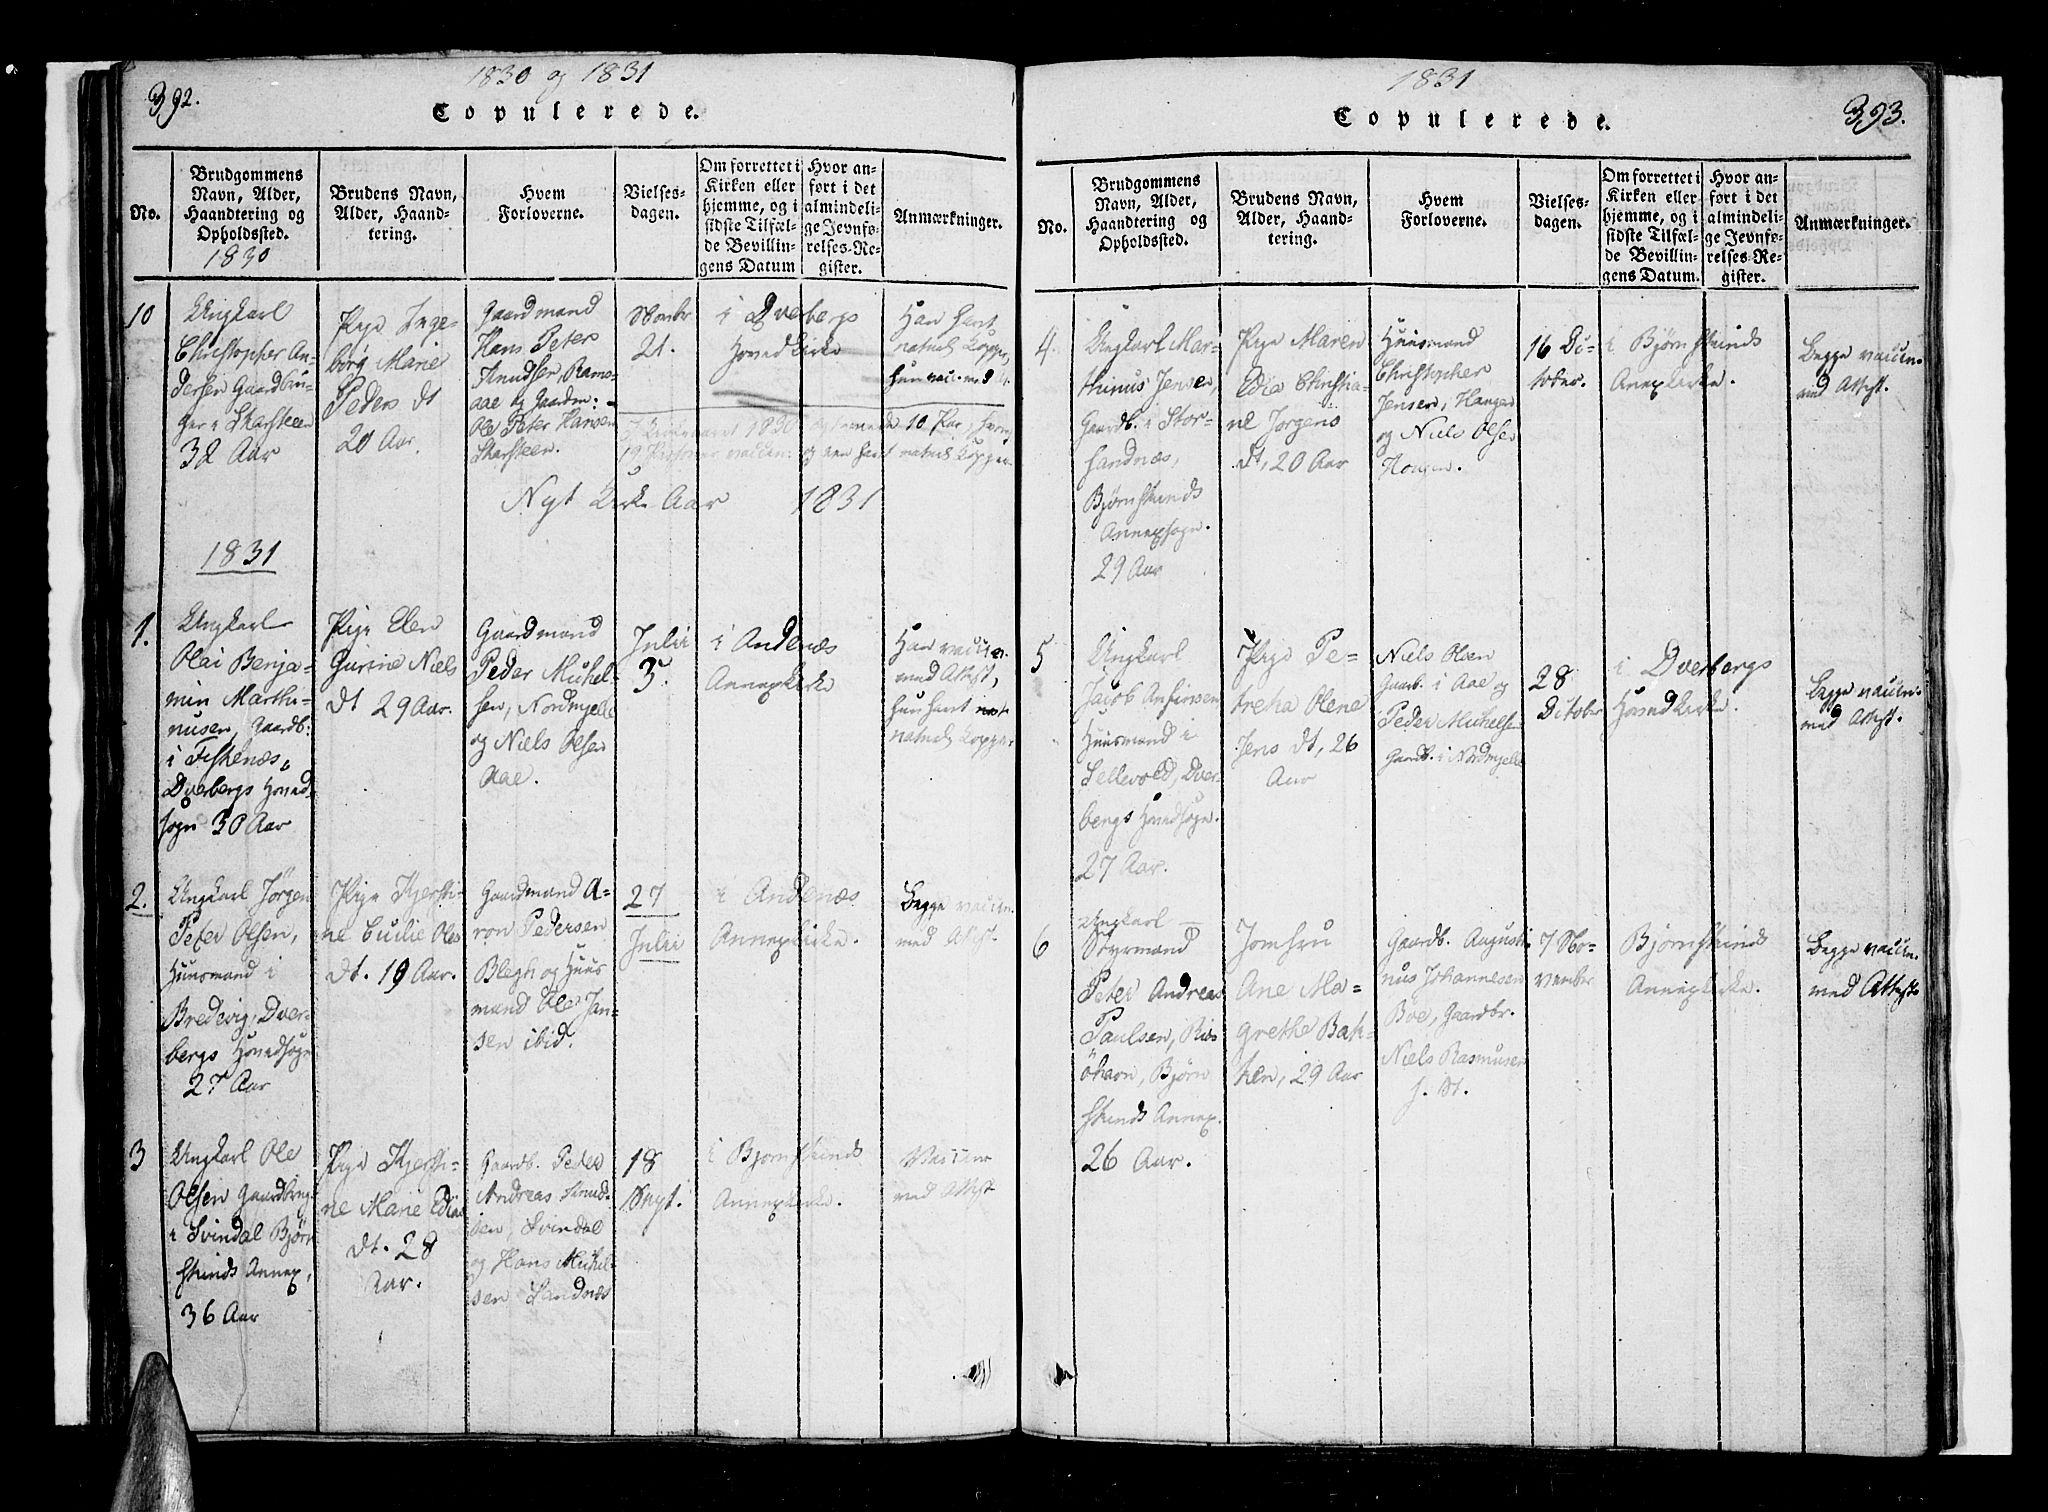 392.
1830 og 1831
Copulerede.
No.
Brudgommens
Navn, Alder,
Haandtering og
Opholdssted.
1830
Brudens Navn,
Alder, Haand-
tering.
Hvem
Forloverne.
Vielses-
dagen.
Om forrettet i
Kirken eller
hjemme, og i
sidste Tilfæl-
de Bevillin-
gens Datum
Hvor an-
ført i det
almindeli-
ge Jevnfø-
relses-Re-
gister.
Anmærkninger.
10
Ungkarl
Christopher An-
dersen Gaardbru-
ger i Skarsteen
32 Aar
Pige Inge-
borg Marie
Peders dt
20 Aar.
Gaardmand
Hans Peter
Knudsen, Rams-
aae og Gaardm:
Ole Peter Hansen
Skarsteen.
Novbr
21.
i Dverbergs
Hovedkirke
Han havt
naturl. Kopper,
hun vacc. med
1830 10 Par,
19 Personer vaccin: og een havt naturl. Kopper
Nyt Kirke Aar 1831
1831
1.
Ungkarl
Olai Benja-
min Marthi-
nusen, Gaardb:
i Fiskenæs,
Dverbergs Hoved-
sogn 30 Aar
Pige Elen
Gurine Niels
dt 29 Aar.
Gaardmand
Peder Michel-
sen, Nordmjelle
og Niels Olsen
Aae.
Julii
3.
i Andenæs
Annexkirke
Han vaccin.
med Attest,
hun havt
naturl. Kopper
2.
Ungkarl Jørgen
Peter Olsen,
Huusmand i
Bredevig, Dver-
bergs Hovedsogn
27 Aar
Pige Kjersti-
ne Cecilie Ols
dt. 19 Aar.
Gaardmand A-
ron Pedersen
Blegh og Huus
mand Ole Jan-
sen ibid.
27
Julii
i Andenæs
Annexkirke.
Begge vaccin.
med Attest.
3
Ungkarl Ole
Olsen Gaardbrug.
i Svindal Bjørn
skinds Annex,
36 Aar
Pige Kjersti-
ne Marie Edias
dt. 28
Aar.
Gaardb. Peder
Andreas Knud-
sen, Svindal
og Hans Michel-
sen Sandnæs
18
Sept.
i Bjørnskinds
Annexkirke.
Vaccin
med Attest
1831
393.
Copulerede.
No.
Brudgommens
Navn, Alder,
Haandtering og
Opholdssted.
Brudens Navn,
Alder, Haand-
tering.
Hvem
Forloverne.
Vielses-
dagen.
Om forrettet i
Kirken eller
hjemme, og i
sidste Tilfæl-
de Bevillin-
gens Datum.
Hvor an-
ført i det
almindeli-
ge Jevnfø-
relses-Re-
gister.
Anmærkninger.
4.
Ungkarl Mar-
thinus Jensen,
Gaardb. i Stor-
sandnæs,
Bjørnskinds
Annexsogn.
29 Aar
Pige Maren
Edia Christia-
ne Jørgens
dt, 20 Aar
Huusmand
Christopher
Jensen,
og Niels Olsen
16 Oc-
tober.
i Bjørnskinds
Annexkirke.
Begge vaccin.
med Attest.
5
Ungkarl
Jacob Anfinsen
Huusmand i
Sellevold, Dver-
bergs Hovedsogn.
27 Aar.
Pige Pe-
trecha Olene
Jens dt, 26
Aar
Niels Olsen
Gaardb. i Aae og
Peder Michelsen
Gaardb. i Nordmjelle
28
October
i Dverbergs
Hovedkirke.
Begge vaccin.
med Attest.
6
Ungkarl
Styrmand
Peter Andreas
Paulsen, Riis
öhavn, Bjørn
skinds Annex.
26 Aar.
Jomfru
Ane Ma-
grethe Bak-
ken, 29 Aar
Gaardb. Augusti-
nus Johannesen
Böe, Gaardbr.
Niels Rasmusen
7 No-
vember
Bjørnskinds
Annexkirke.
Begge vaccin.
med Attest